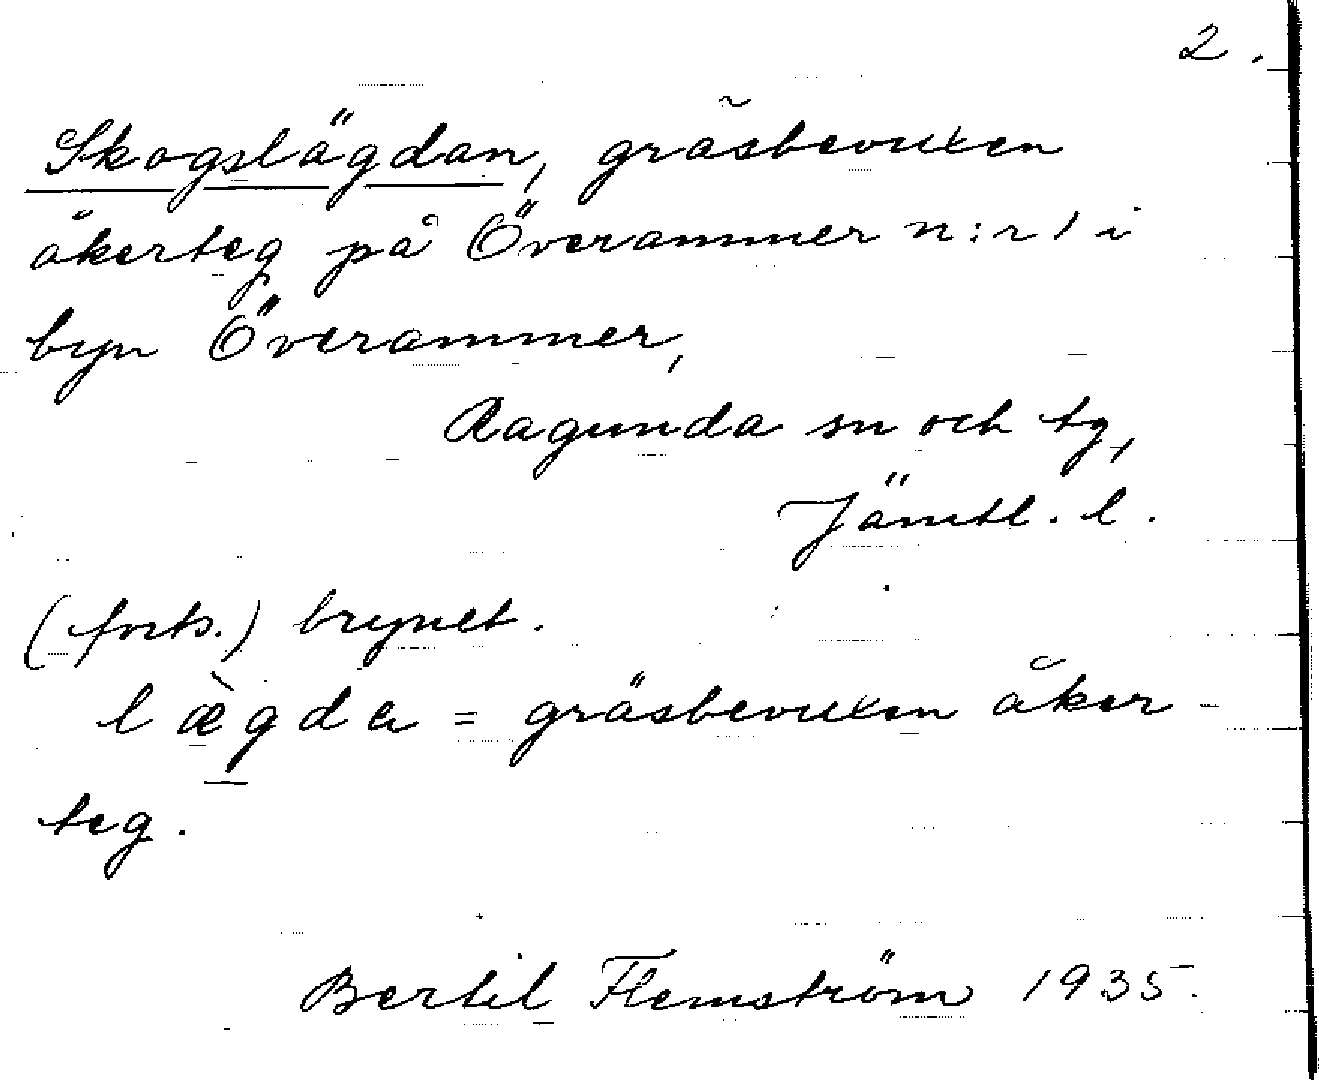 2.
Skogslägdan, gräsbevuxen
åkerteg på Överammer n:r 1 i
byn Överammer,
Ragunda sn och tg,
Jämtl. l.
(forts.) brynet.
læ̀gda = gräsbevuxen åker-
teg.
Bertil Flemström 1935.